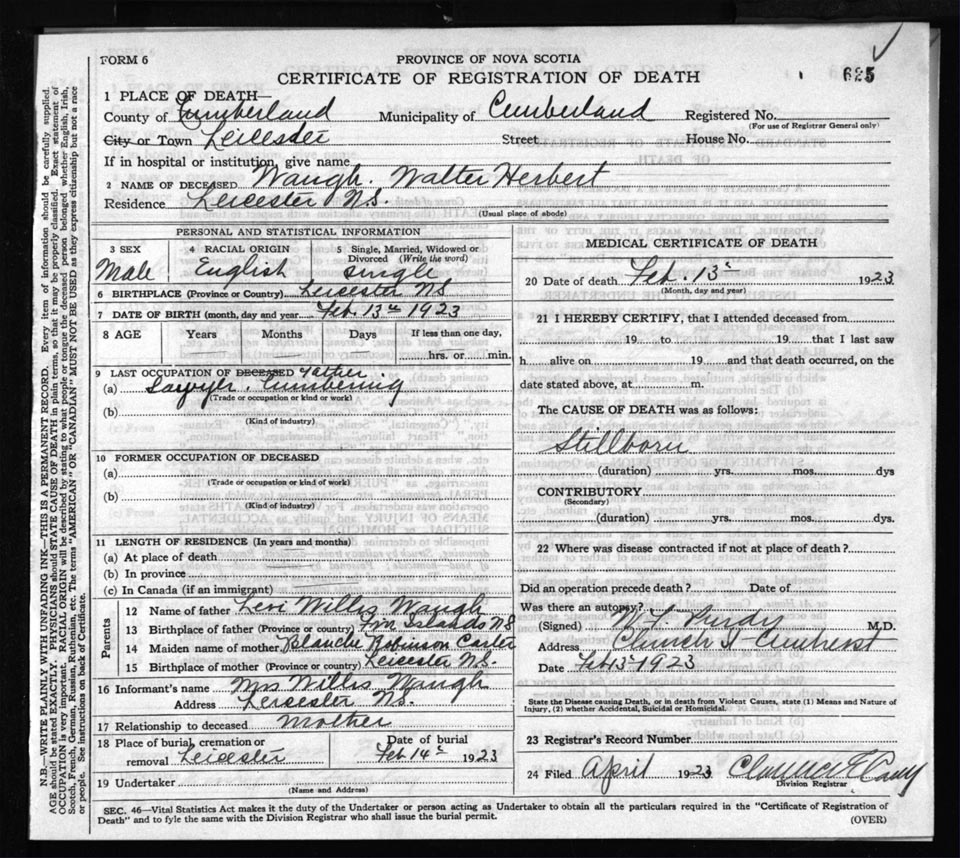 FORM 6
PROVINCE OF NOVA SCOTIA
CERTIFICATE OF REGISTRATION OF DEATH
625
1 PLACE OF DEATH—
County of Cumberland Municipality of Cumberland Registered No.
(For use of Registrar General only)
City or Town Leicester Street House No.
If in hospital or institution, give name
2 NAME OF DECEASED Waugh. Walter Herbert
Residence Leicester N.S.
(Usual place of abode)
PERSONAL AND STATISTICAL INFORMATION
3 SEX 4 RACIAL ORIGIN 5 Single, Married, Widowed or Divorced (Write the word)
Male English Single
6 BIRTHPLACE (Province or Country) Leicester NS
7 DATE OF BIRTH (month, day and year) Feb. 13th 1923
8 AGE Years Months Days If less than one day,
hrs. or min.
9 LAST OCCUPATION OF DECEASED Father
(a) Sawyer. Lumbering
(Trade or occupation or kind or work)
(b)
(Kind of industry)
10 FORMER OCCUPATION OF DECEASED
(a)
(Trade or occupation or kind of work)
(b)
(Kind of industry)
11 LENGTH OF RESIDENCE (In years and months)
(a) At place of death
(b) In province
(c) In Canada (if an immigrant)
Parents
12 Name of father Levi Willis Waugh
13 Birthplace of father (Province or country) Islands N.S
14 Maiden name of mother Blanche Robinson Carter
15 Birthplace of mother (Province or country) Leicester N.S.
16 Informant's name Mrs Willis Waugh
Address Leicester N.S.
17 Relationship to deceased Mother
18 Place of burial, cremation or removal Leicester
Date of burial Feb 14th 1923
19 Undertaker
(Name and Address)
MEDICAL CERTIFICATE OF DEATH
20 Date of death Feb. 13th 1923
(Month, day and year)
21 I HEREBY CERTIFY, that I attended deceased from
19 to 19 that I last saw
h alive on 19 and that death occurred, on the
date stated above, at m.
The CAUSE OF DEATH was as follows:
Stillborn
(duration) yrs. mos. dys
CONTRIBUTORY
(Secondary)
(duration) yrs. mos. dys.
22 Where was disease contracted if not at place of death?
Did an operation precede death? Date of
Was there an autopsy?
(Signed) Purdy M.D.
Address Church St Amherst
Date Feb 13 1923
State the Disease causing Death, or in death from Violent Causes, state (1) Means and Nature of
Injury, (2) whether Accidental, Suicidal or Homicidal.
23 Registrar's Record Number
24 Filed April 1923 Clarence E
Division Registrar
SEC. 46—Vital Statistics Act makes it the duty of the Undertaker or person acting as Undertaker to obtain all the particulars required in the "Certificate of Registration of
Death" and to fyle the same with the Division Registrar who shall issue the burial permit.
(OVER)
N.B.—WRITE PLAINLY WITH UNFADING INK—THIS IS A PERMANENT RECORD. Every item of information should be carefully supplied.
AGE should be stated EXACTLY. PHYSICIANS should STATE CAUSE OF DEATH in plain terms, so that it may be properly classified. Exact statement of
OCCUPATION is very important. RACIAL ORIGIN will be described by stating to what people or tongue the deceased person belonged, whether English, Irish,
Scotch, French, German, Russian, Ruthenian, etc. The terms "AMERICAN" OR "CANADIAN" MUST NOT BE USED as they express citizenship but not a race
or people. See instructions on back of Certificate.